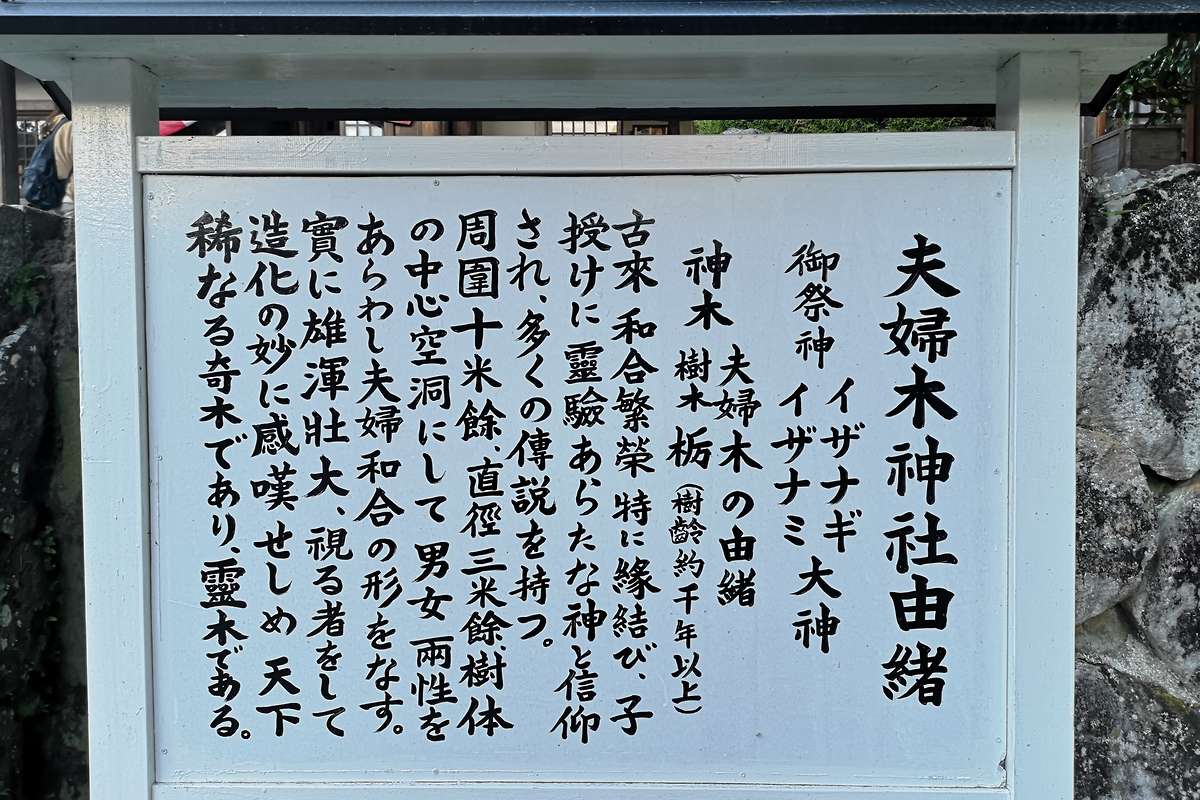 夫婦木神社由緒
御祭神
イザナギ
イザナミ
大神
神木
夫婦木の由緒
樹木栃(樹齢約千年以上)
古來和合繁榮特に縁結び、子
授けに靈驗あらたな神と信仰
され、多くの傳説を持つ。
周圍十米餘、直徑三米餘、樹体
の中心空洞にして男女両性を
あらわし夫婦和合の形をなす。
實に雄渾壮大、視る者をして
造化の妙に感嘆せしめ天下
稀なる奇木であり、靈木である。